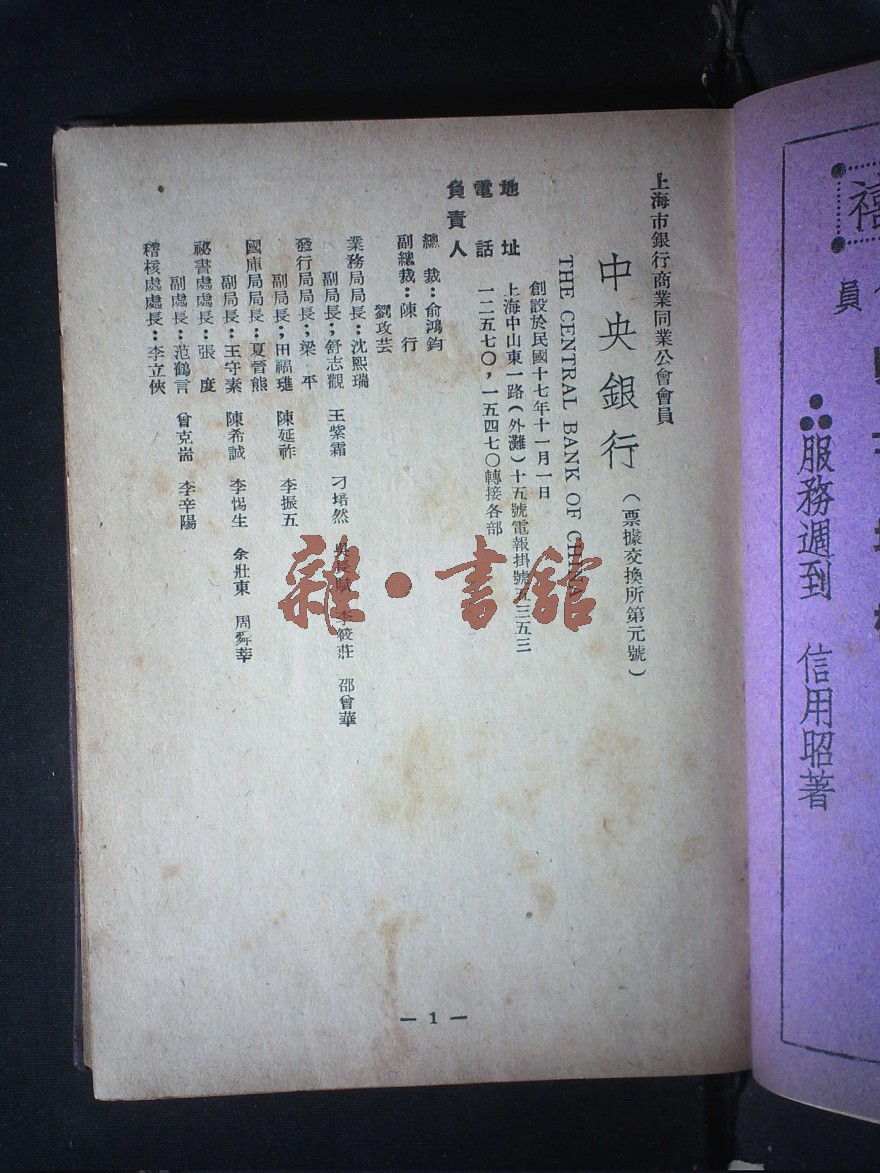 上海市銀行商業同業公會會員
中央銀行（票據交換所第元號）
THE CENTRAL BANK OF CHINA
創設於民國十七年十一月一日
地址 上海中山東一路（外灘）十五號電報掛號五三五三
電話 一二五七〇，一五四七〇轉接各部
負責人
總裁：俞鴻鈞
副總裁：陳行
劉攻芸
業務局局長：沈熙瑞
副局長：舒志觀 王紫霜 刁培然 吳長賦 李筱莊 邵曾華
發行局局長：梁平
副局長：田福進 陳延祚 李振五
國庫局局長：夏晉熊
副局長：王守素 陳希誠 李惕生 余壯東 周舜莘
祕書處處長：張度
副處長：范鶴言 曾克耑 李辛陽
稽核處處長：李立俠
— 1 —
雜·書館
禧
員
服務週到 信用昭著